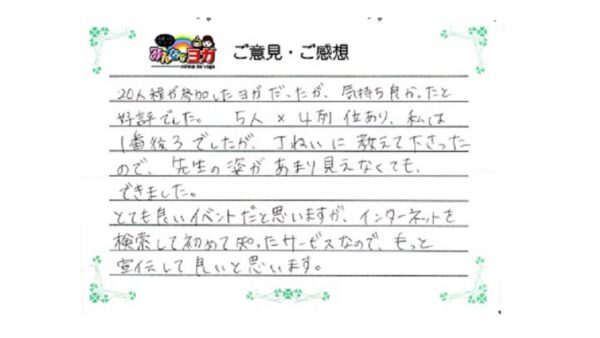 みんなでヨガ
minna de yoga
ご意見・ご感想
20人程が参加したヨガだったが、気持ち良かったと
好評でした。 5人×4列位あり、私は
1番後ろでしたが、てねいに教えて下さった
ので、先生の姿があまり見えなくても、
できました。
とても良いイベントだと思いますが、インターネットを
検索して初めて知ったサービスなので、もっと
宣伝して良いと思います。